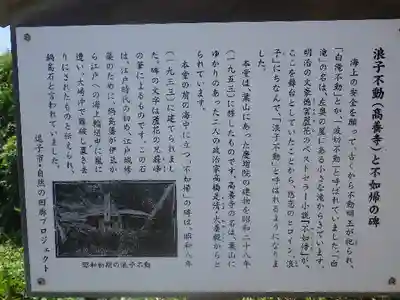 浪子不動(高養寺)と不如帰の碑
海上の安全を願って、古くから不動明王が祀られ、
「白滝不動」とか、「波切不動」と呼ばれていました。「白
滝」の名は、左奥の崖にある小さな滝からきています。
明治の文豪徳冨蘆花のベストセラー小説『不如帰』が、
ここを舞台としていたことから、悲恋のヒロイン「浪
子」にちなんで、「浪子不動」と呼ばれるようになりま
した。
本堂は、葉山にあった慶増院の建物を昭和二十八年
(一九五三)に移したものです。高養寺の名は、葉山に
ゆかりのあった二人の政治家高橋是清・犬養毅からと
りました。
本堂の前の海中に立つ「不如帰」の碑は、昭和八年
(一九三三)に建てられまし
た。碑の文字は蘆花の兄蘇峰
の筆によるものです。この石
は、江戸時代の初め、江戸城修
築のために、鍋島藩が伊豆か
ら江戸への海上輸送中に風に
遭い、大崎沖で難破し置き去
りにされたものと伝えられ、
鍋島石と言われていました。
逗子市・自然の回廊プロジェクト
昭和初期の浪子不動